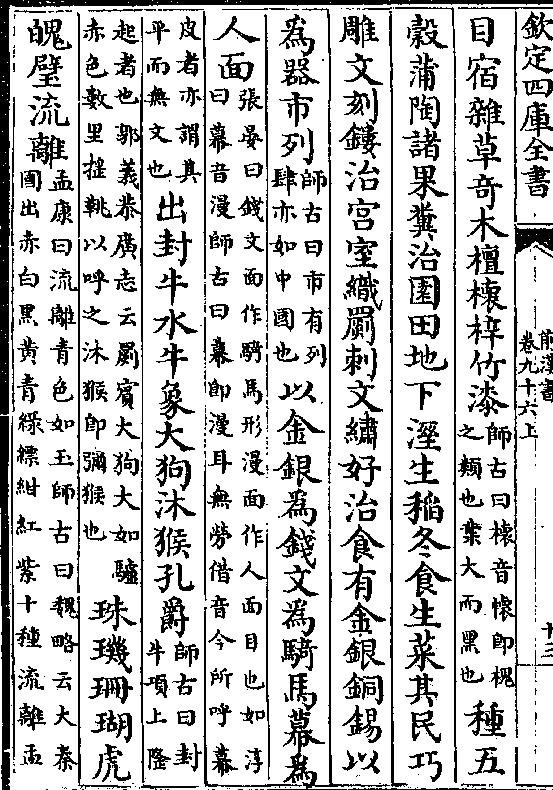 欽定四庫全書
前漢書
卷九十六上
十三
目宿雜草竒木檀櫰梓竹漆師古曰櫰音懷即槐之類也葉大而黑也種五
穀蒲陶諸果糞治園田地下溼生稲冬食生菜其民巧
雕文刻鏤治宫室織罽刺文繡好治食有金銀銅錫以
為器市列師古曰市有列肆亦如中國也以金銀為錢文為騎馬幕為
人面張晏曰錢文面作騎馬形漫面作人面目也如淳曰幕音漫師古曰幕即漫耳無勞借音今所呼幕
皮者亦謂其平而無文也出封牛水牛象大狗沐猴孔爵師古曰封牛項上隆
起者也郭義恭廣志云罽賓大狗大如驢赤色數里揺鞉以呼之沐猴即獼猴也珠璣珊瑚虎
魄璧流離孟康曰流離青色如玉師古曰魏略云大秦國出赤白黒黄青緑縹紺紅紫十種流離孟